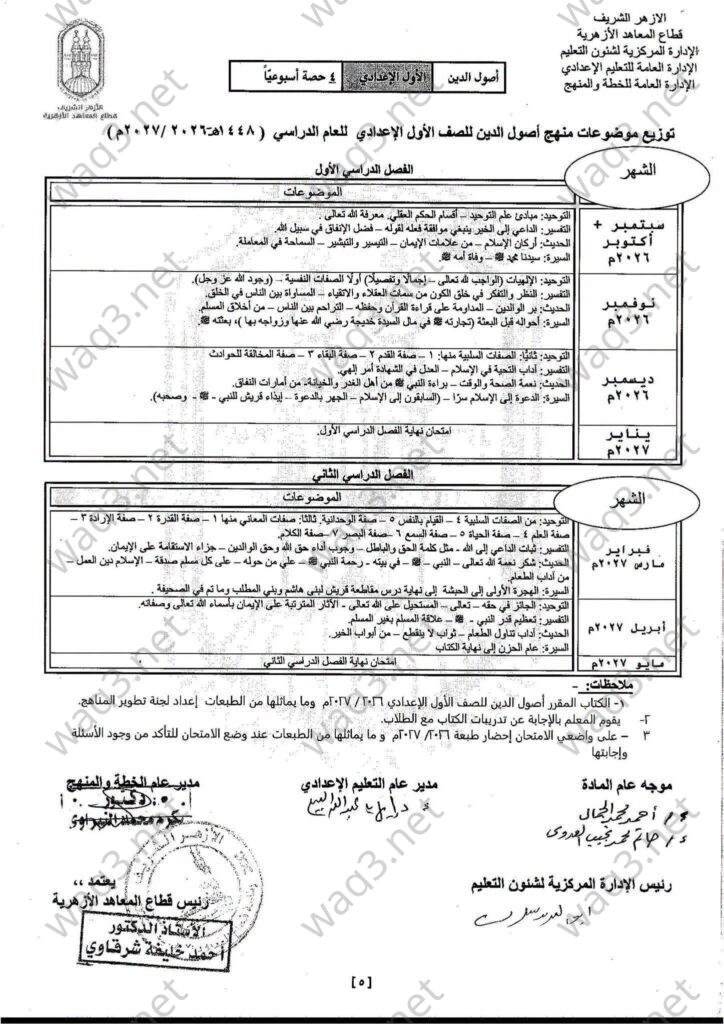 الازهر الشريف
قطاع المعاهد الأزهرية
الإدارة المركزية لشئون التعليم
الإدارة العامة للتعليم الإعدادي
الإدارة العامة للخطة والمنهج
الأزهر الشريف
قطاع المعاهد الأزهرية
أصول الدين
الأول الإعدادي
٤ حصة أسبوعيًا
توزيع موضوعات منهج أصول الدين للصف الأول الإعدادي للعام الدراسي ( ١٤٤٨هـ-٢٠٢٦ /٢٠٢٧م )
الفصل الدراسي الأول
الشهر
الموضوعات
سبتمبر + أكتوبر ٢٠٢٦م
التوحيد: مبادئ علم التوحيد – أقسام الحكم العقلي. معرفة الله تعالى.
التفسير: الداعي إلى الخير ينبغي موافقة فعله لقوله – فضل الإنفاق في سبيل الله.
الحديث: أركان الإسلام – من علامات الإيمان – التيسير والتبشير – السماحة في المعاملة.
السيرة: سيدنا محمد ﷺ – وفاة أمه ﷺ.
نوفمبر ٢٠٢٦م
التوحيد: الإلهيات (الواجب لله تعالى – إجمالًا وتفصيلًا) أولًا الصفات النفسية – (وجود الله عز وجل).
التفسير: النظر والتفكر في خلق الكون من سمات العقلاء والاتقياء – المساواة بين الناس في الخلق.
الحديث: بر الوالدين – المداومة على قراءة القرآن وحفظه – التراحم بين الناس – من أخلاق المسلم.
السيرة: أحواله قبل البعثة (تجارته ﷺ في مال السيدة خديجة رضي الله عنها وزواجه بها )، بعثته ﷺ.
ديسمبر ٢٠٢٦م
التوحيد: ثانيًا: الصفات السلبية منها: ١ – صفة القدم ٢ – صفة البقاء ٣ – صفة المخالفة للحوادث
التفسير: آداب التحية في الإسلام – العدل في الشهادة أمر إلهي.
الحديث: نعمة الصحة والوقت – براءة النبي ﷺ من أهل الغدر والخيانة- من أمارات النفاق.
السيرة: الدعوة إلى الإسلام سرًا – (السابقون إلى الإسلام – الجهر بالدعوة – إيذاء قريش للنبي - ﷺ - وصحبه).
يناير ٢٠٢٧م
امتحان نهاية الفصل الدراسي الأول.
الفصل الدراسي الثاني
الشهر
الموضوعات
فبراير مارس ٢٠٢٧م
التوحيد: من الصفات السلبية ٤ – القيام بالنفس ٥ – صفة الوحدانية. ثالثا: صفات المعاني منها ١ – صفة القدرة ٢ – صفة الإرادة ٣ –
صفة العلم ٤ – صفة الحياة ٥ – صفة السمع ٦ – صفة البصر ٧ – صفة الكلام.
التفسير: ثبات الداعي إلى الله - مثل كلمة الحق والباطل – وجوب أداء حق الله وحق الوالدين – جزاء الاستقامة على الإيمان.
الحديث: شكر نعمة الله تعالى – النبي – ﷺ – في بيته - رحمة النبي ﷺ – علي من حوله – على كل مسلم صدقة – الإسلام دين العمل –
من آداب الطعام.
السيرة: الهجرة الأولى إلى الحبشة إلى نهاية درس مقاطعة قريش لبني هاشم وبني المطلب وما تم في الصحيفة .
أبريل ٢٠٢٧م
التوحيد: الجائز في حقه – تعالى – المستحيل على الله تعالى - الآثار المترتبة على الإيمان بأسماء الله تعالى وصفاته.
التفسير: تعظيم قدر النبي - ﷺ – علاقة المسلم بغير المسلم.
الحديث: آداب تناول الطعام – ثواب لا ينقطع – من أبواب الخير.
السيرة: عام الحزن إلى نهاية الكتاب
مايو ٢٠٢٧م
امتحان نهاية الفصل الدراسي الثاني
ملاحظات: –
١- الكتاب المقرر أصول الدين للصف الأول الإعدادي ٢٠٢٦/ ٢٠٢٧م وما يماثلها من الطبعات إعداد لجنة تطوير المناهج.
٢- يقوم المعلم بالإجابة عن تدريبات الكتاب مع الطلاب.
٣ – على واضعي الامتحان إحضار طبعة ٢٠٢٦/ ٢٠٢٧م و ما يماثلها من الطبعات عند وضع الامتحان للتأكد من وجود الأسئلة
وإجابتها
موجه عام المادة
مدير عام التعليم الإعدادي
مدير عام الخطة والمنهج
أحمد محمد الجمال
رئيس الإدارة المركزية لشئون التعليم
يعتمد ،،
رئيس قطاع المعاهد الأزهرية
الأزهر الشريف
الأستاذ الدكتور
أحمد خليفة شرقاوي
[ ٥ ]
waq3.net